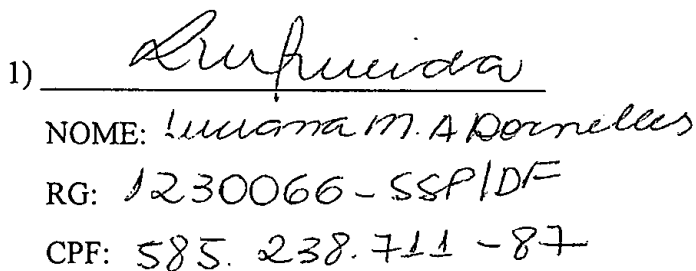 1)
NOME: Luciana M. A Dornelles
RG: 1230066 - SSP/DF
CPF: 585. 238. 711 - 87